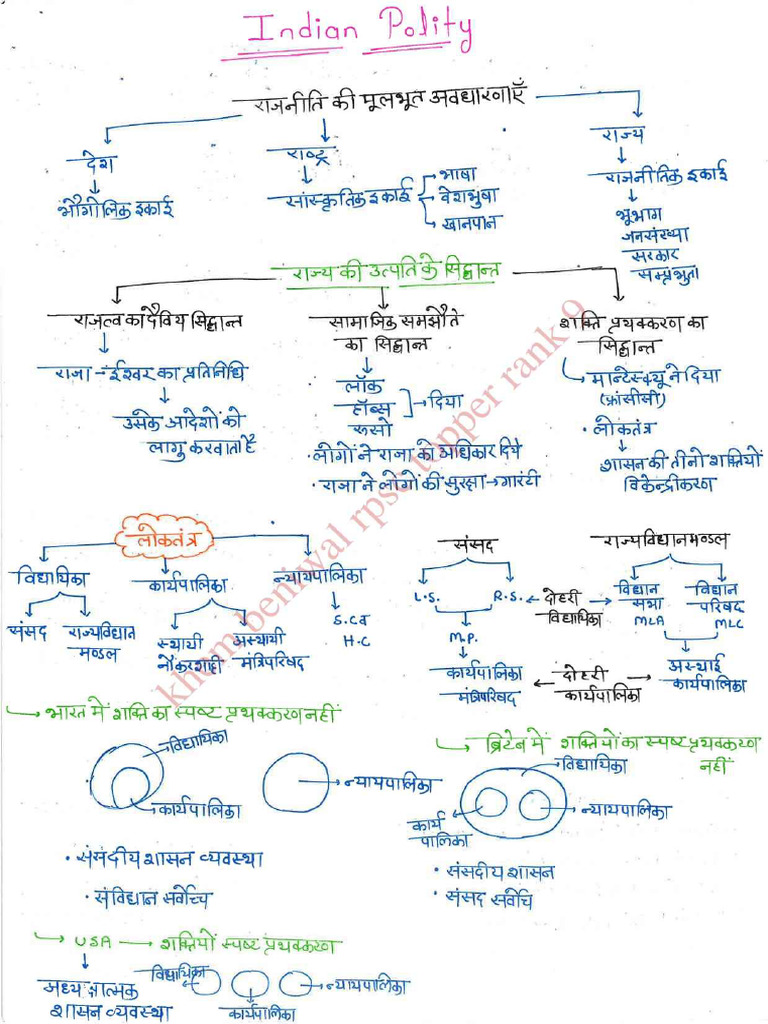 Indian Polity
राजनीति की मूलभूत अवधारणाएँ
देश
राष्ट्र
राज्य
भौगोलिक इकाई
सांस्कृतिक इकाई
भाषा
वेशभुषा
खानपान
राजनीतिक इकाई
भूभाग
जनसंख्या
सरकार
सम्प्रभुता
राज्य की उत्पति के सिद्धान्त
राजत्व का दैविय सिद्धान्त
राजा - ईश्वर का प्रतिनिधि
उसके आदेशों को
लागु करवाता है
सामाजिक समझौते
का सिद्धान्त
लॉक
हॉब्स
रूसो
दिया
· लोगों ने राजा को अधिकार दिये
· राजा ने लोगों की सुरक्षा → गारंटी
शक्ति प्रथक्करण का
सिद्धान्त
मान्टेस्क्यू ने दिया
(फ्रांसीसी)
· लोकतंत्र
शासन की तीनो शक्तियों
विकेन्द्रीकरण
लोकतंत्र
विधायिका
कार्यपालिका
न्यायपालिका
संसद
राज्यविधान
मण्डल
स्थायी
नौकरशाही
अस्थायी
मंत्रिपरिषद
S.C व
H.C
संसद
राज्यविधानमण्डल
L.S.
R.S.
दोहरी
विधायिका
विधान
सभा
MLA
विधान
परिषद
MLC
M.P.
कार्यपालिका
मंत्रिपरिषद
दोहरी
कार्यपालिका
अस्थाई
कार्यपालिका
भारत में शक्ति का स्पष्ट प्रथक्करण नहीं
विधायिका
कार्यपालिका
न्यायपालिका
· संसदीय शासन व्यवस्था
· संविधान सर्वोच्च
ब्रिटेन में शक्तियों का स्पष्ट प्रथक्करण
नहीं
विधायिका
कार्य
पालिका
न्यायपालिका
· संसदीय शासन
· संसद सर्वोच
USA → शक्तियों स्पष्ट प्रथक्करण
शासन व्यवस्था
विधायिका
कार्यपालिका
न्यायपालिका
khem beniwal rpsc topper rank 9